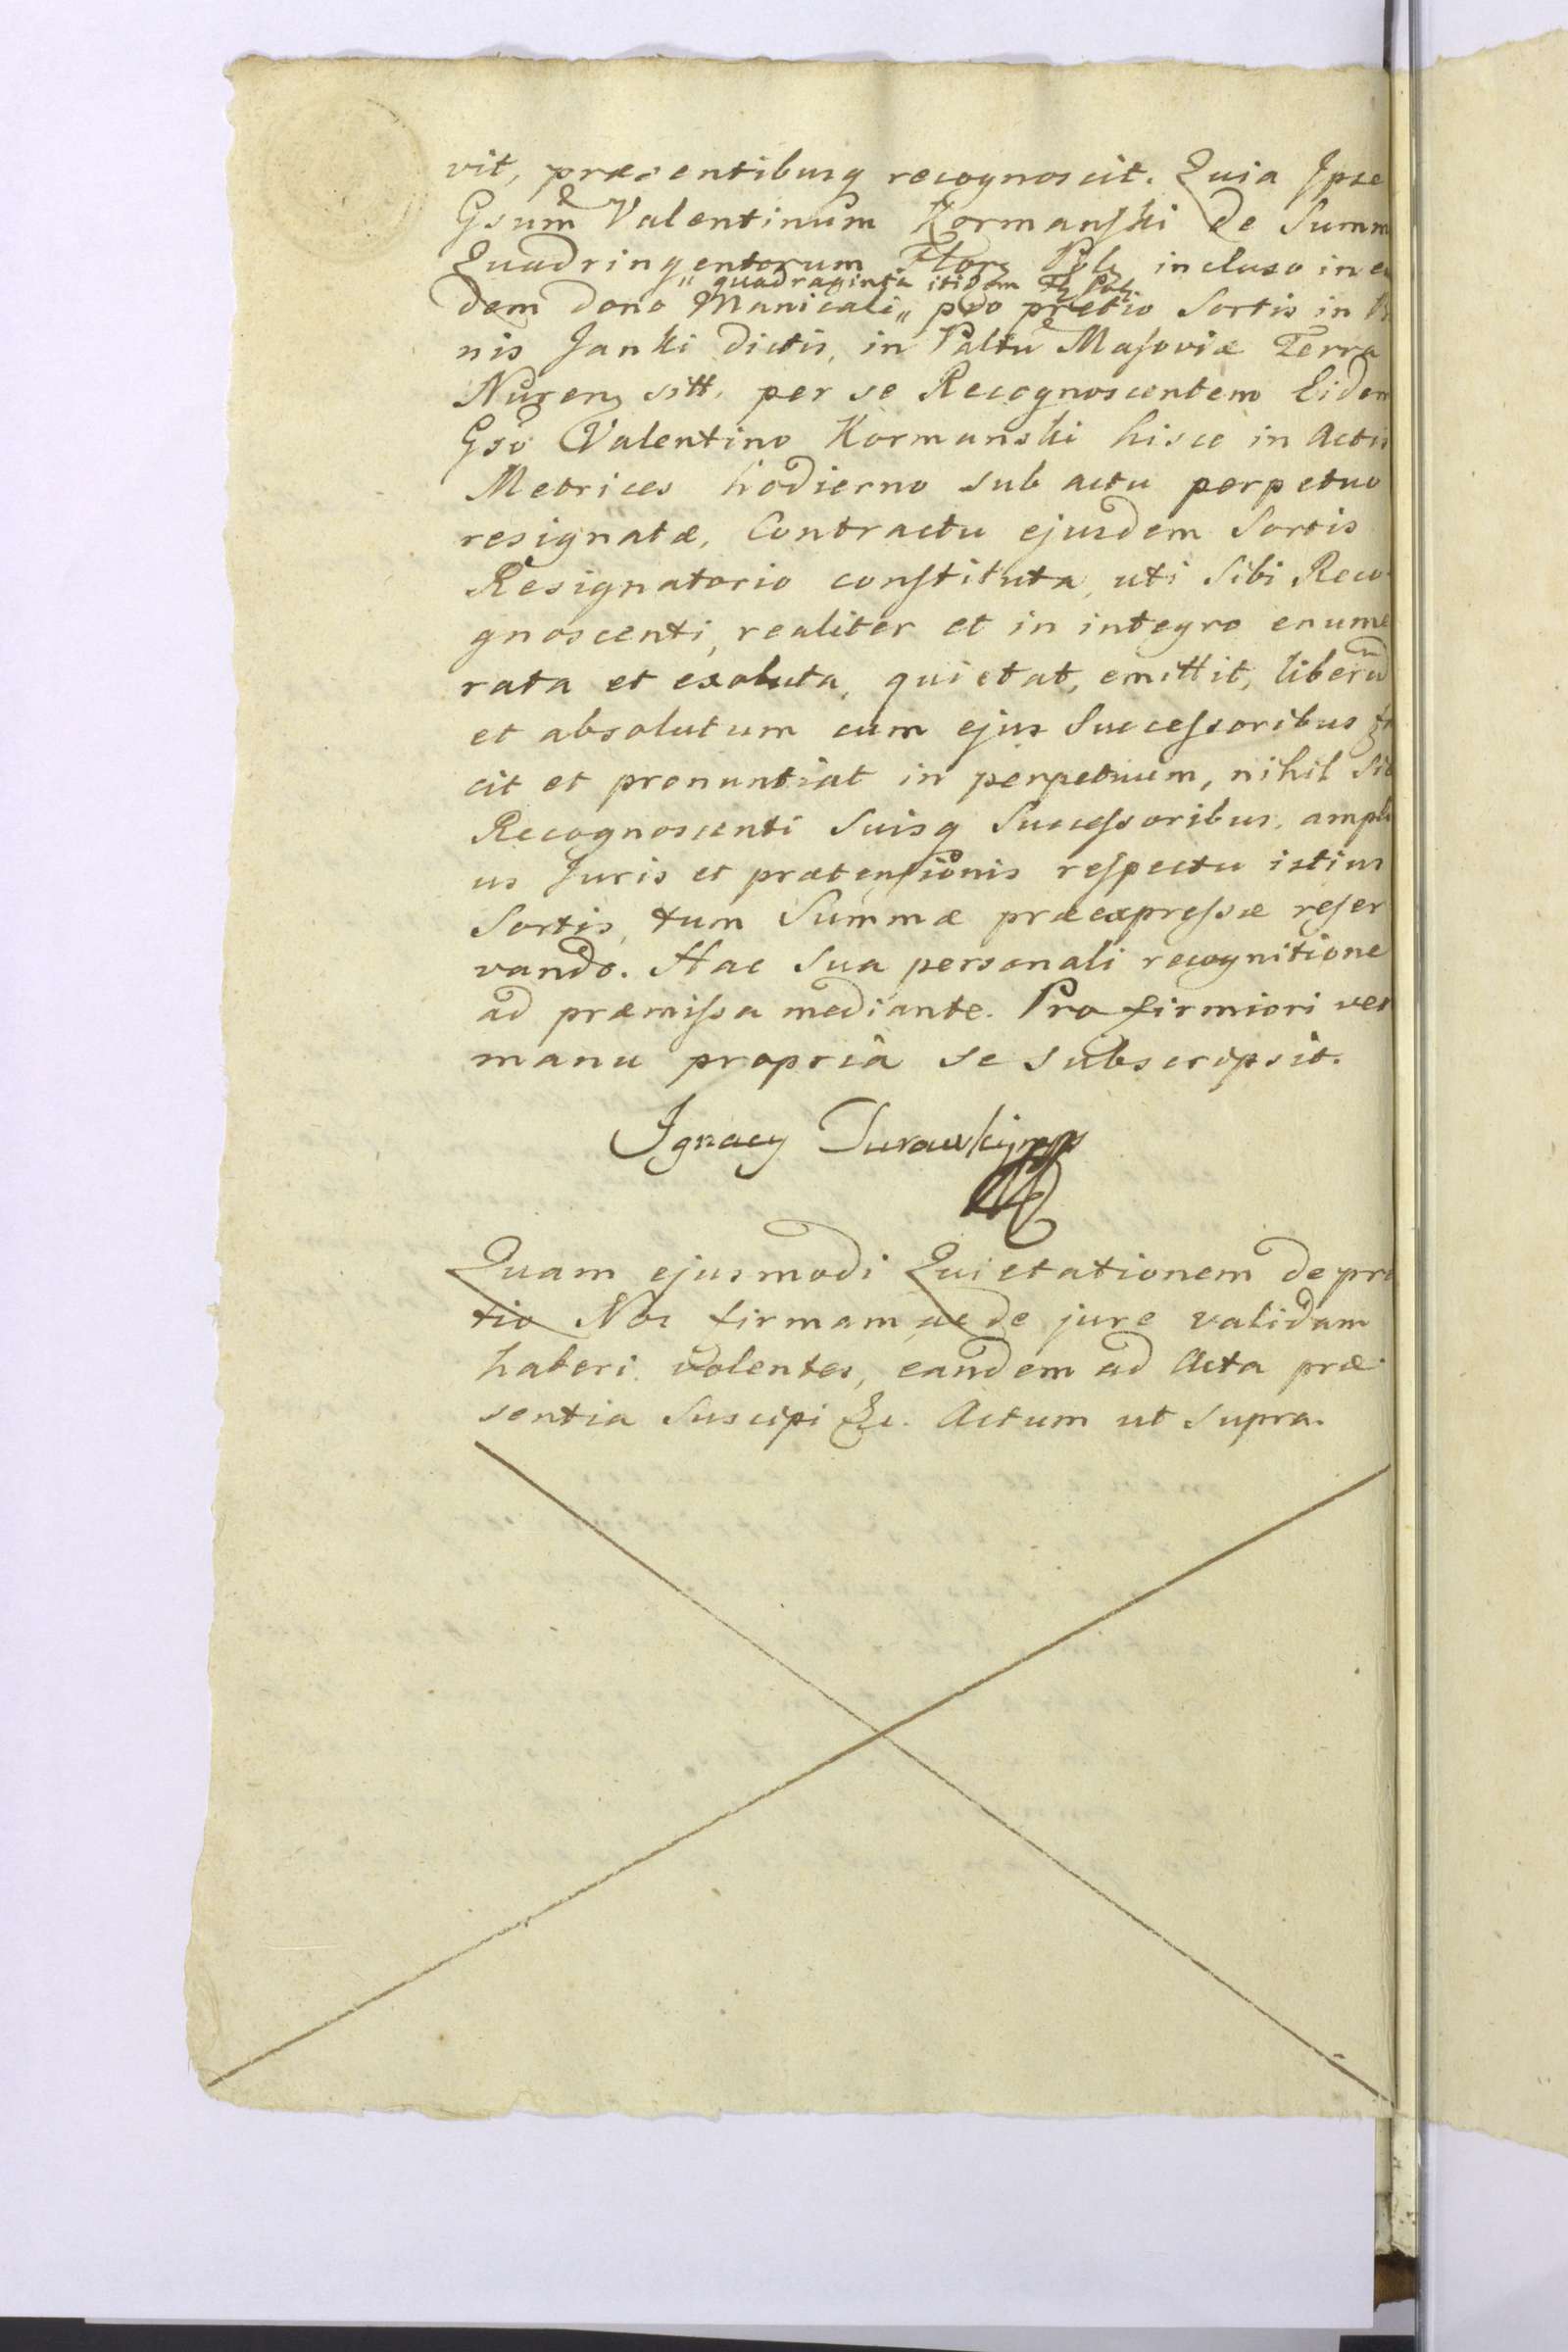 vit, præsentibusq recognoscit. Quia Ipse
Gsum Valentinum Kormanſki de Summ
Quadringentorum Flor Pol incluso in ea
„ quadraginta itidem Fl Pol.
dem dono Manicali „ pro pretio Sortis in B
nis Janki dictis, in Paltu Maſoviæ Terra
Nuren sitt. per se Recognoscentem Eidem
Gso Valentino Kormanski hisce in Actis
Metrices hodierno sub actu perpetuo
resignatæ, Contractu ejusdem Sortis
Resignatorio conſtituta, uti Sibi Reco
gnoscenti, realiter et in integro enume
rata et exoluta, quietat, emittit, liberū
et absolutum cum ejus Succeſsoribus fa
cit et pronuntiat in perpetuum, nihil Sib
Recognoscenti Suisq Succeſsoribus, ampli
us Juris et prætenſionis reſpectu istius
Sortis, tum Summæ præexpreſsæ reſer
vando. Hac Sua personali recognitione
ad præmiſsa mediante. Pro firmiori vero
manu propriâ se subscripsit.
Ignacy Turowſki mpp
Quam ejusmodi Quietationem de pre
tio Nos firmam ac de jure validam
haberi volentes, eandem ad Acta præ
sentia Suscipi &c. Actum ut supra.